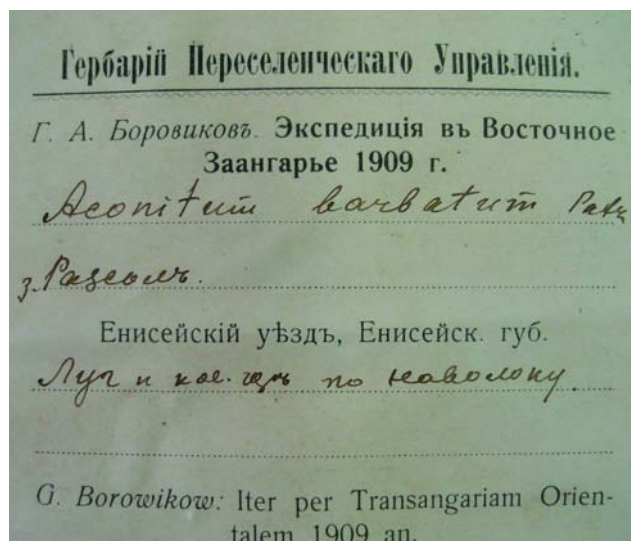 Гербарій Переселенческаго Управленія.
Г. А. Боровиковъ. Экспедиція въ Восточное
Заангарье 1909 г.
Aconitum barbatum Patr
з. Разсолъ.
Енисейскій уѣздъ, Енисейск. губ.
Луг и по наволоку.
G. Borowikow: Iter per Transangariam Orien-
talem 1909 an.